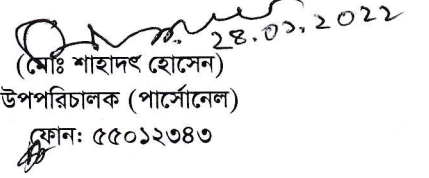 28.03.2022
(মোঃ শাহাদৎ হোসেন)
উপপরিচালক (পার্সোনেল)
ফোন: ৫৫০১২৩৪৩